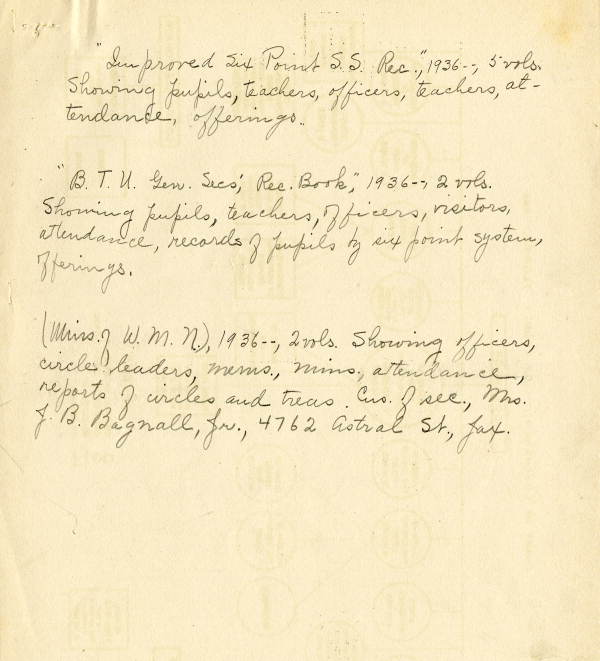 "Improved Six Point S.S. Rec.", 1936--, 5 vols.
Showing pupils, teachers, officers, teachers, at-
tendance, offerings.
"B. T. U. Gen. Secs', Rec. Book", 1936--, 2 vols.
Showing pupils, teachers, officers, visitors,
attendance, records of pupils by six point system,
offerings.
(Mins. of W. M. U.), 1936--, 2 vols. Showing officers,
circle leaders, mems., mins., attendance,
reports of circles and treas. Cus. of sec., Mrs.
J. B. Bagnall, Jr., 4762 Astral St., Jax.